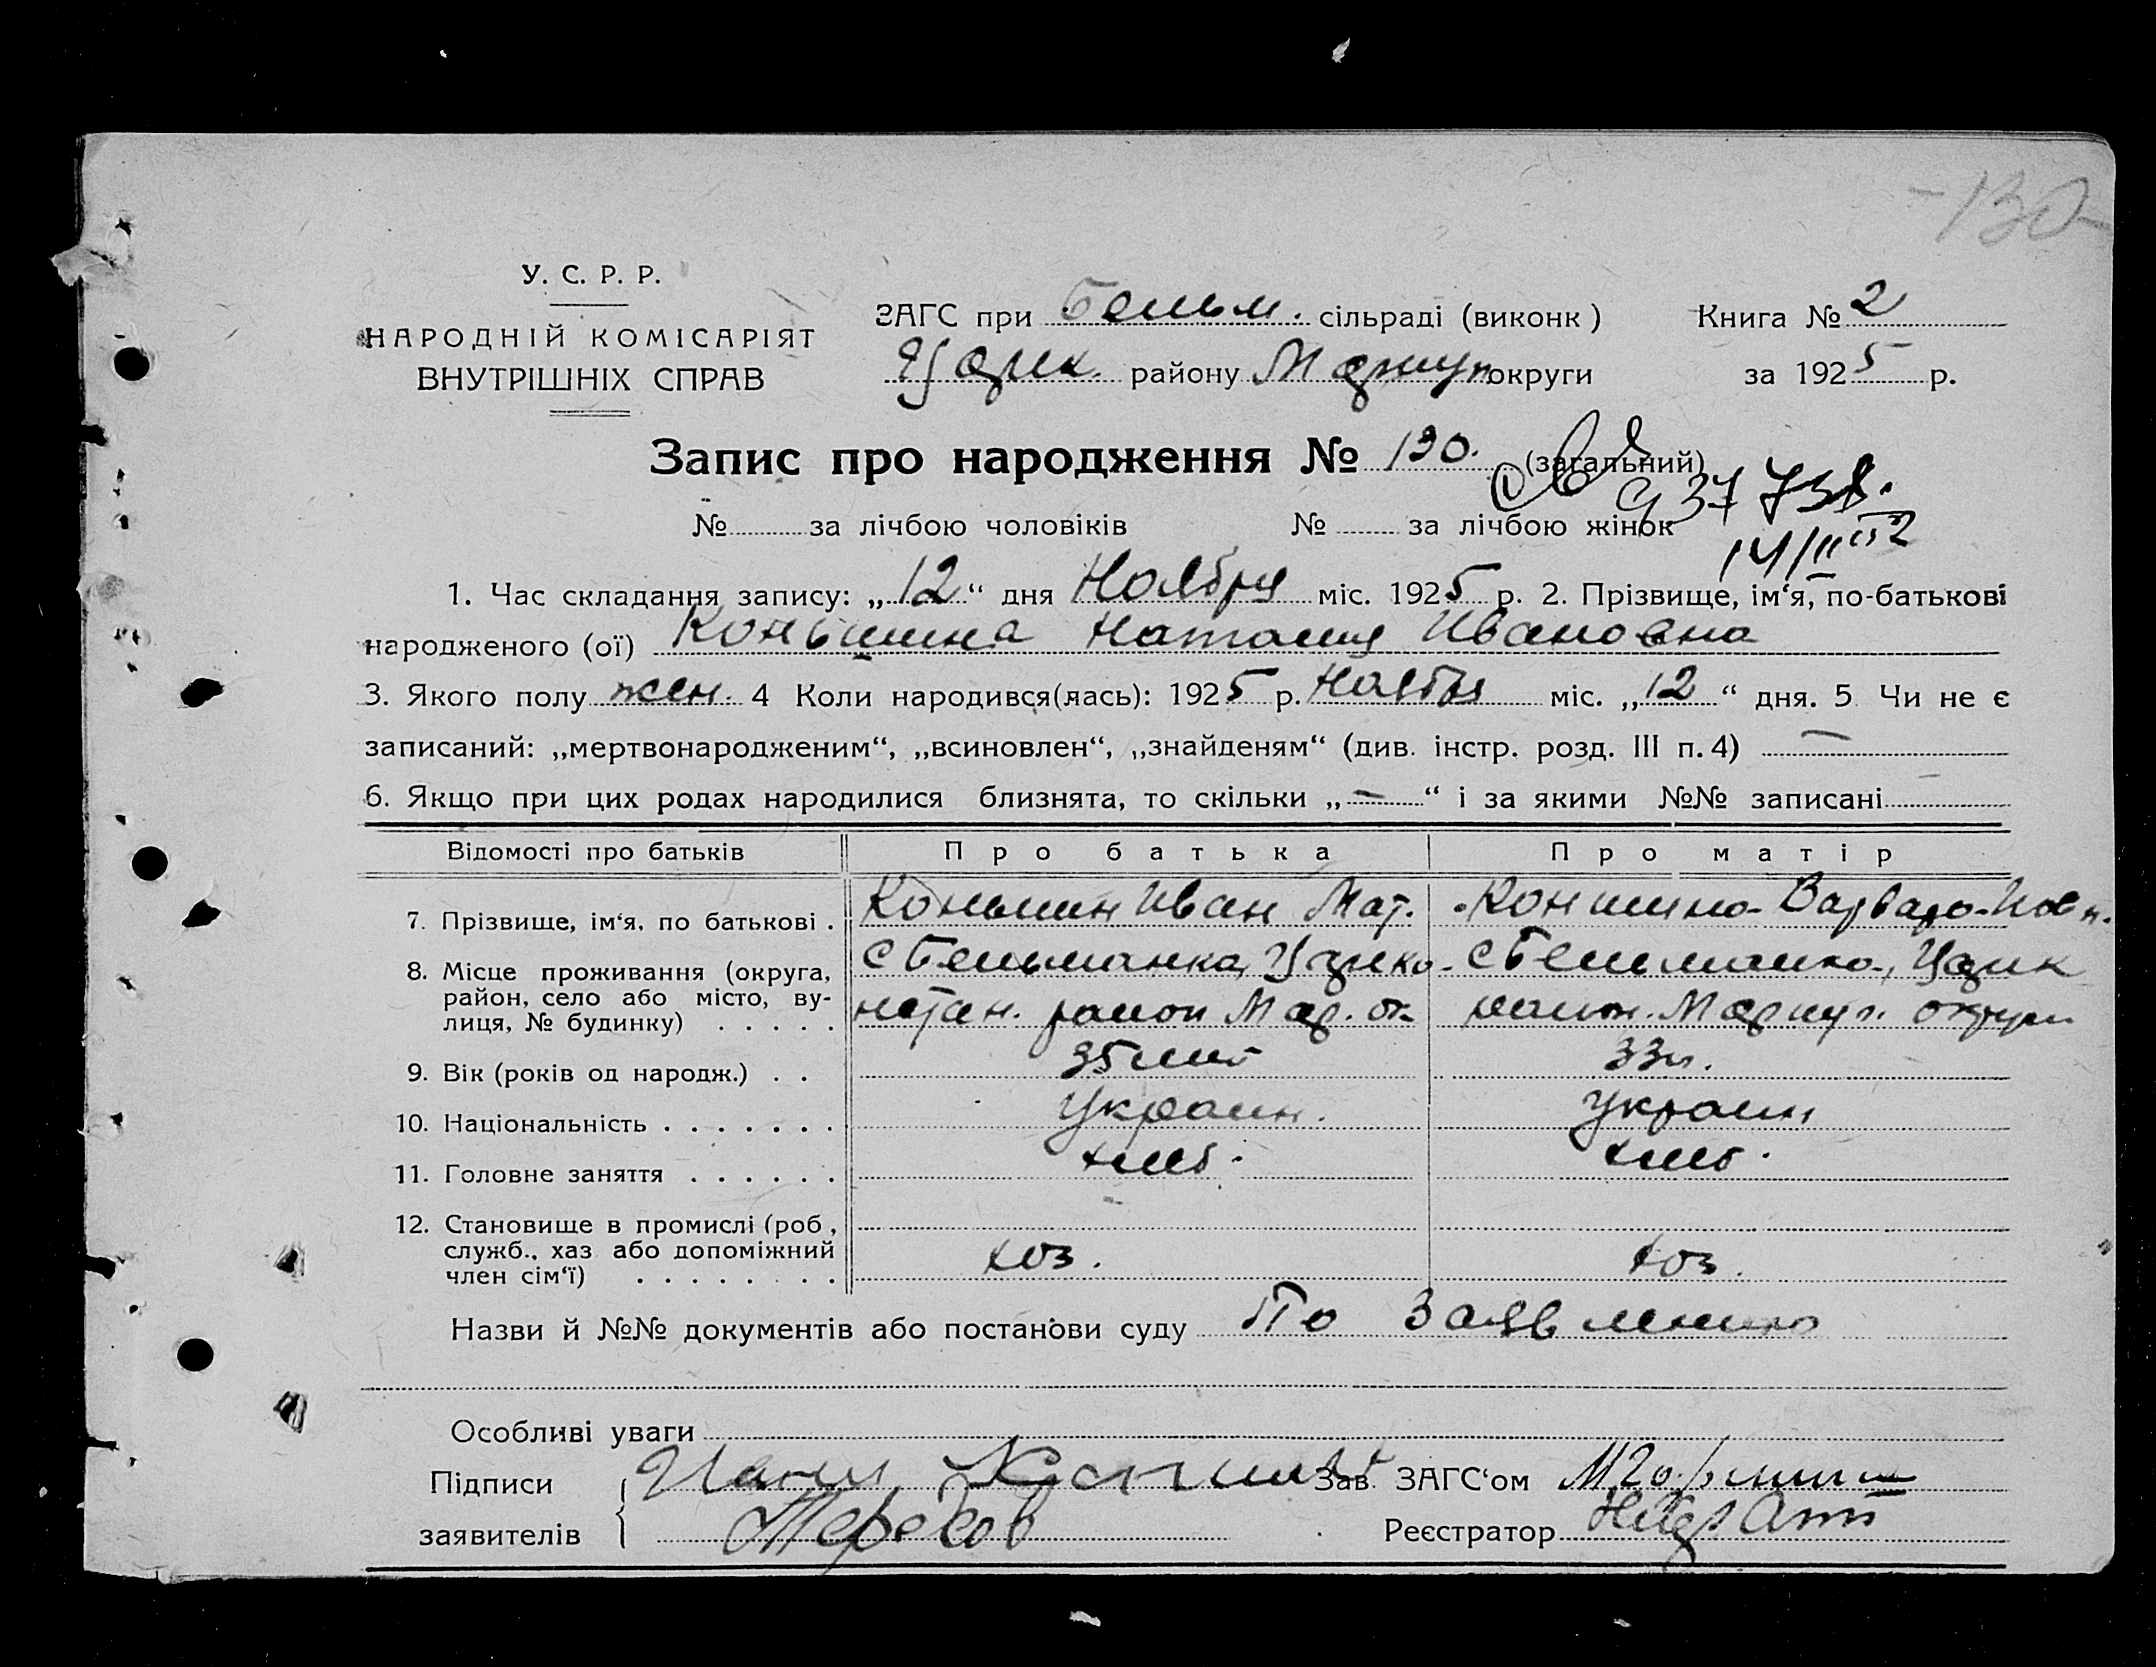 130
У. С. Р. Р.
НАРОДНІЙ КОМІСАРІЯТ
ВНУТРІШНІХ СПРАВ
ЗАГС при Бельм. сільраді (виконк)
Книга № 2
Царек. району Мариуп. округи
за 1925 р.
Запис про народження № 130. (загальний)
№ за лічбою чоловіків № за лічбою жінок
1. Час складання запису: „12“ дня Ноября міс. 1925 р. 2. Прізвище, ім‘я, по-батькові
народженого (ої) Коньшина Наталия Ивановна
3. Якого полу жен. 4 Коли народився(лась): 1925 р. Ноября міс. „12“ дня. 5 Чи не є
записаний: „мертвонародженим“, „всиновлен“, „знайденям“ (див. інстр. розд. III п. 4) —
6. Якщо при цих родах народилися близнята, то скільки „—“ і за якими №№ записані
Відомості про батьків Про батька Про матір
7. Прізвище, ім‘я, по батькові . Коньшин Иван Мат. Коншина Варвара
8. Місце проживання (округа, с Бельманка, с Бельманка, Царек
район, село або місто, ву- район Мар. ок. район. Мариуп. округи
лиця, № будинку) . . . . .
9. Вік (років од народж.) . . 35 лет 33 л.
10. Національність . . . . . . . Украин. Украин
11. Головне заняття . . . . . . хлеб. хлеб.
12. Становище в промислі (роб,
служб., хаз або допоміжний хоз. хоз.
член сім‘ї) . . . . . . . .
Назви й №№ документів або постанови суду По Заявлению
Особливі уваги
Підписи Зав. ЗАГС‘ом
заявителів Реєстратор